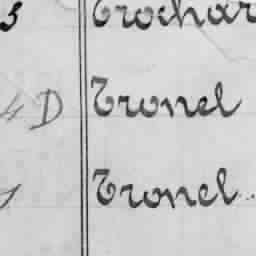 3 Trochar
4 D Tronel
1 Tronel.